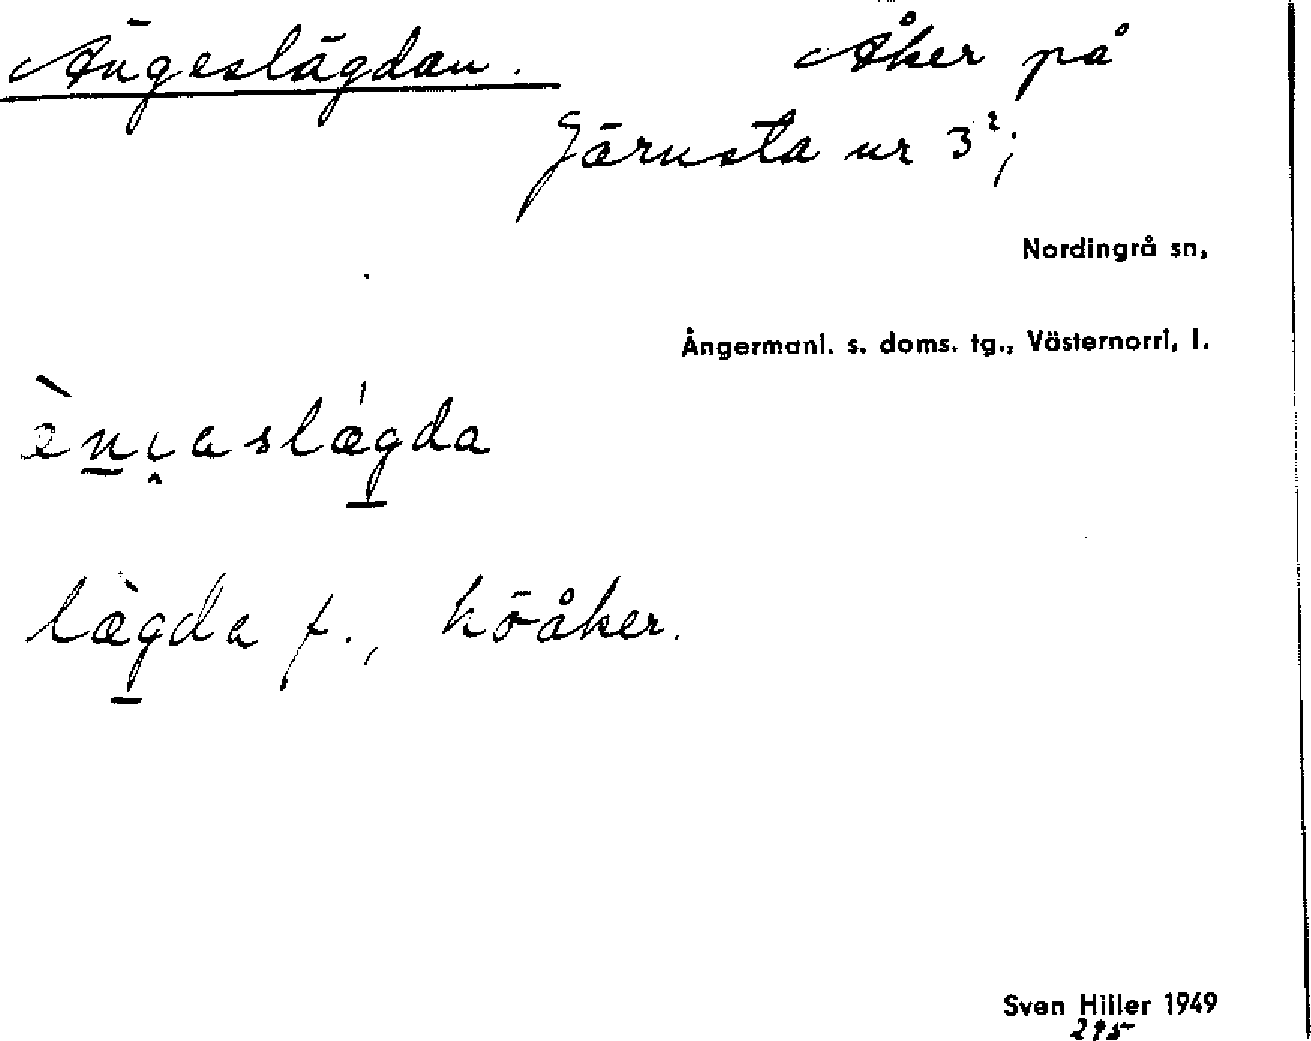 Ängeslägdan. Åker på
Järnsta nr 3²;
Nordingrå sn,
Ångermanl. s. doms. tg., Västernorrl, l.
lǽgda f., höåker.
Sven Hiller 1949
295